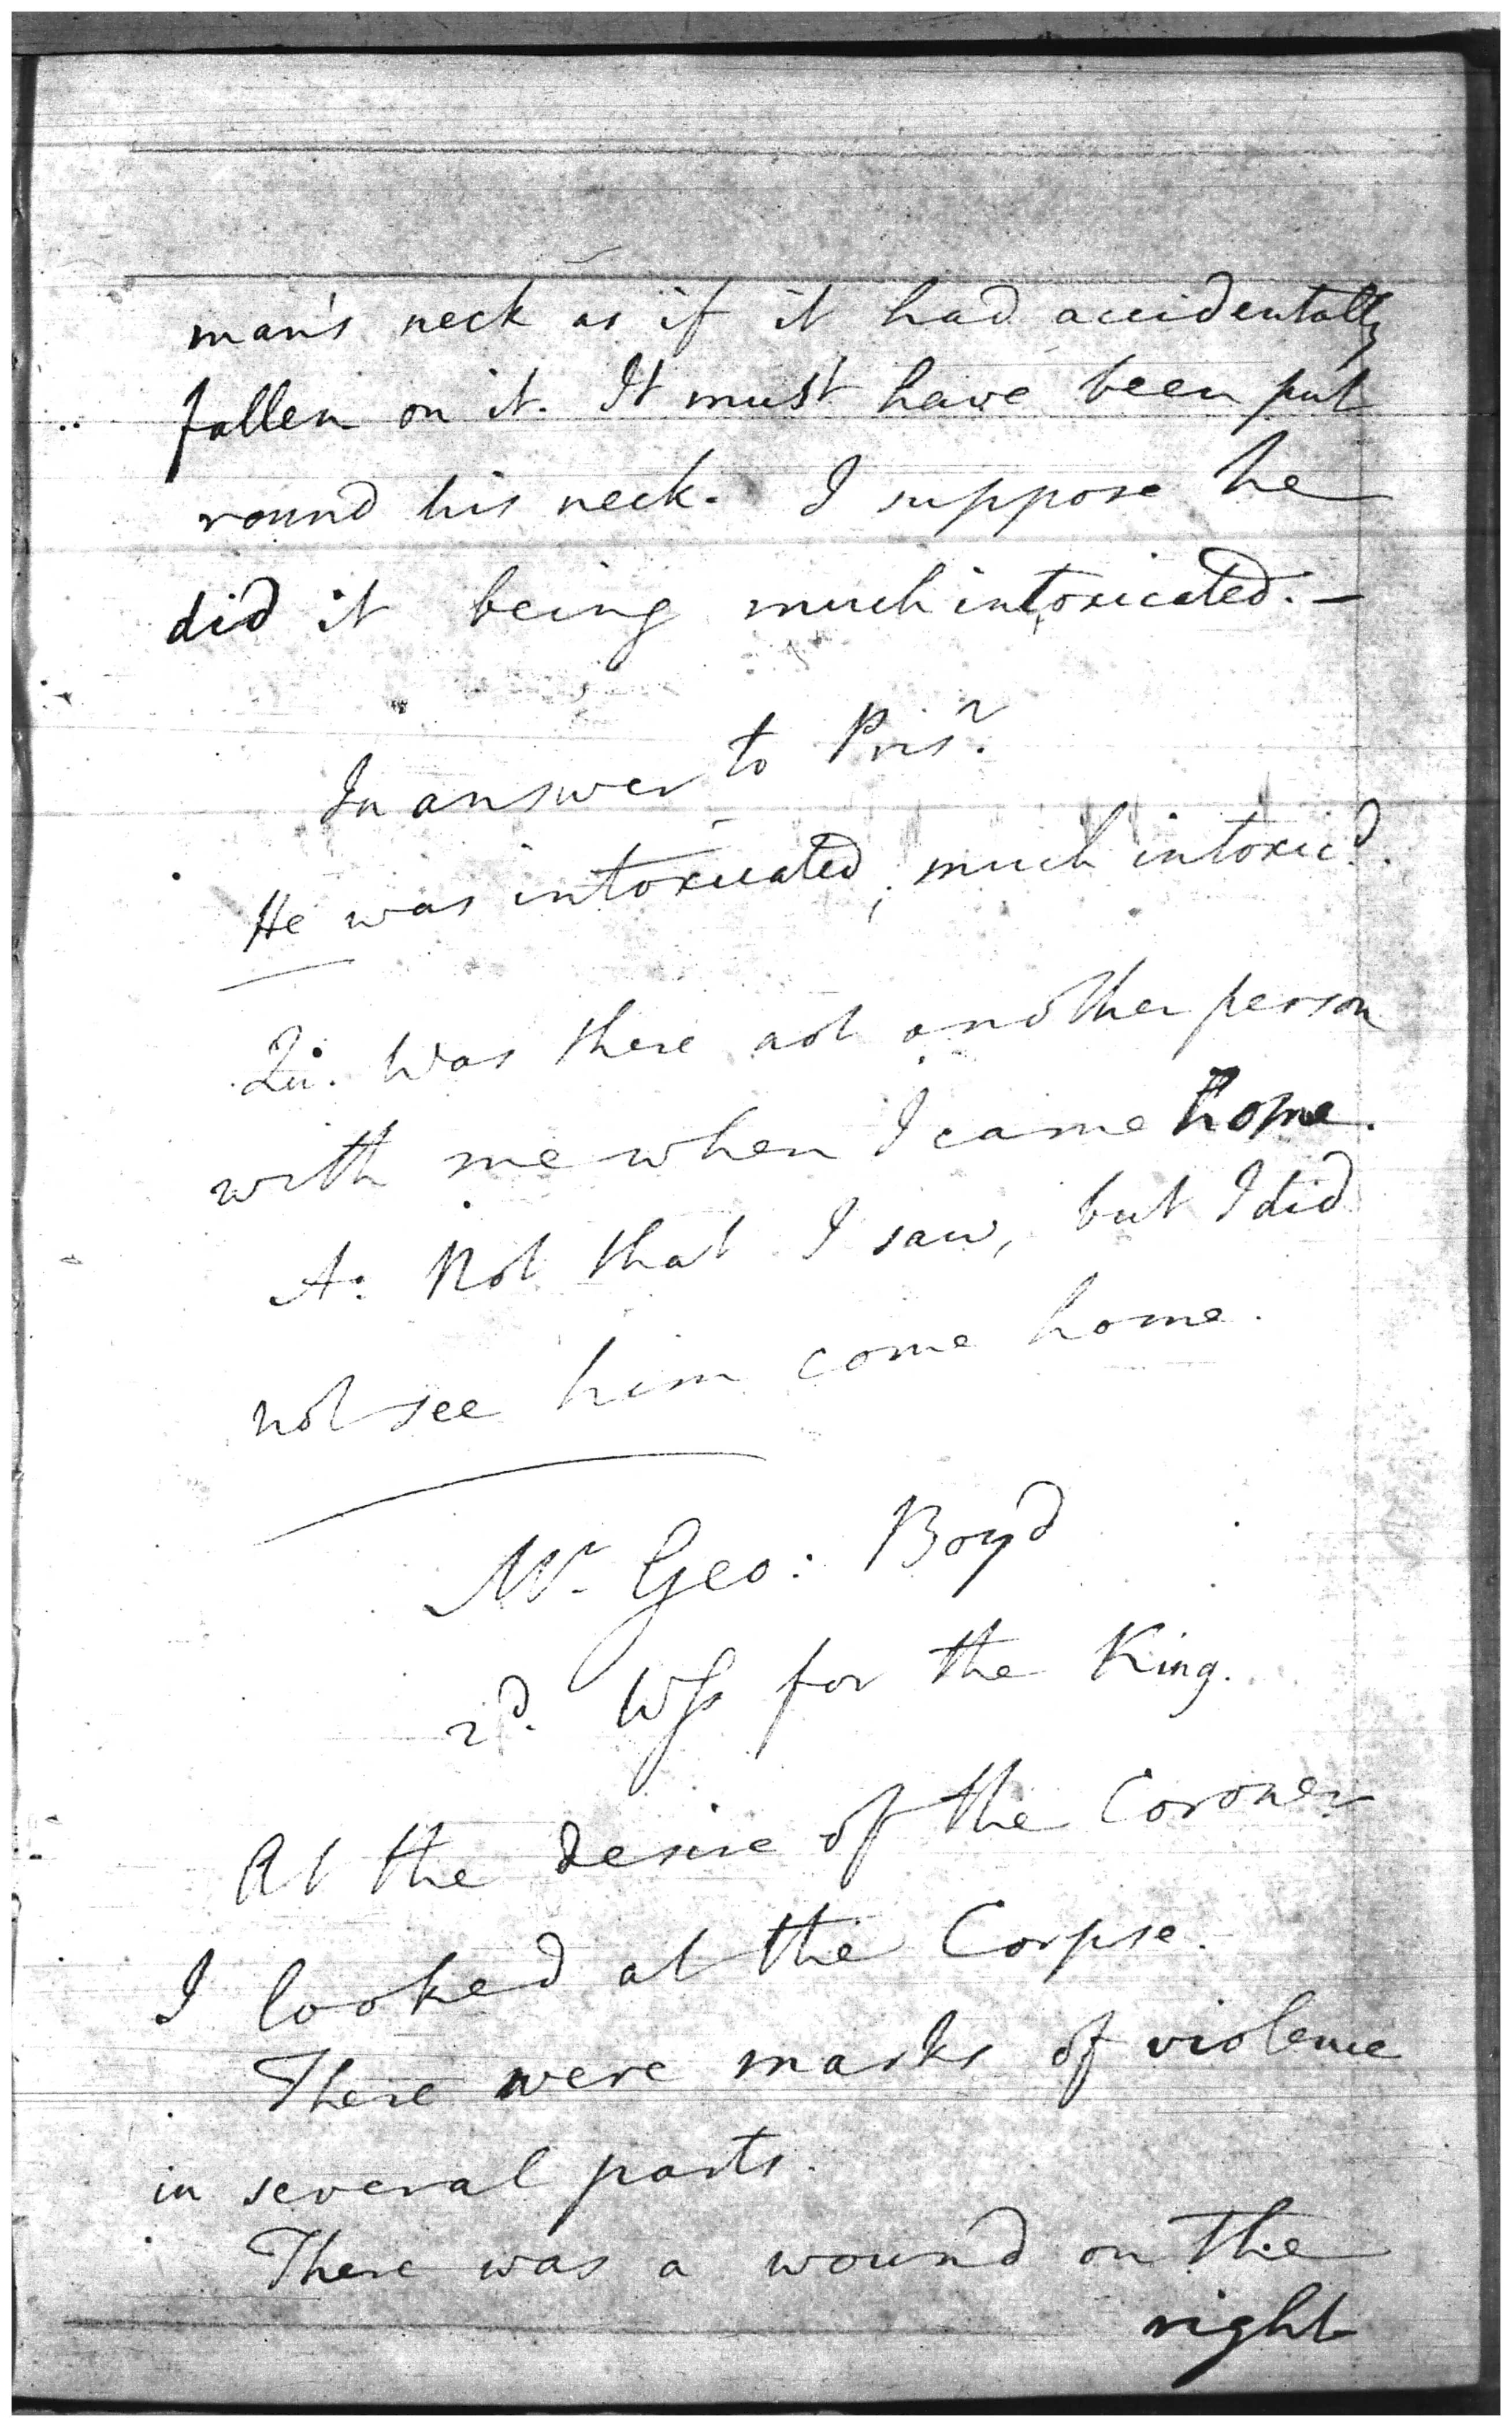 man's neck as if it had accidentally
fallen on it. It must have been put
round his neck. I suppose he
did it being much intoxicated. —
In answer to Prisr.
He was intoxicated, much intoxicd.
Qu. Was there not another person
with me when I came home.
A: Not that I saw, but I did
not see him come home.
Mr. Geo: Boyd
2d. Wss for the King.
At the desire of the Coroner
I looked at the Corpse.
There were marks of violence
in several parts.
There was a wound on the
right